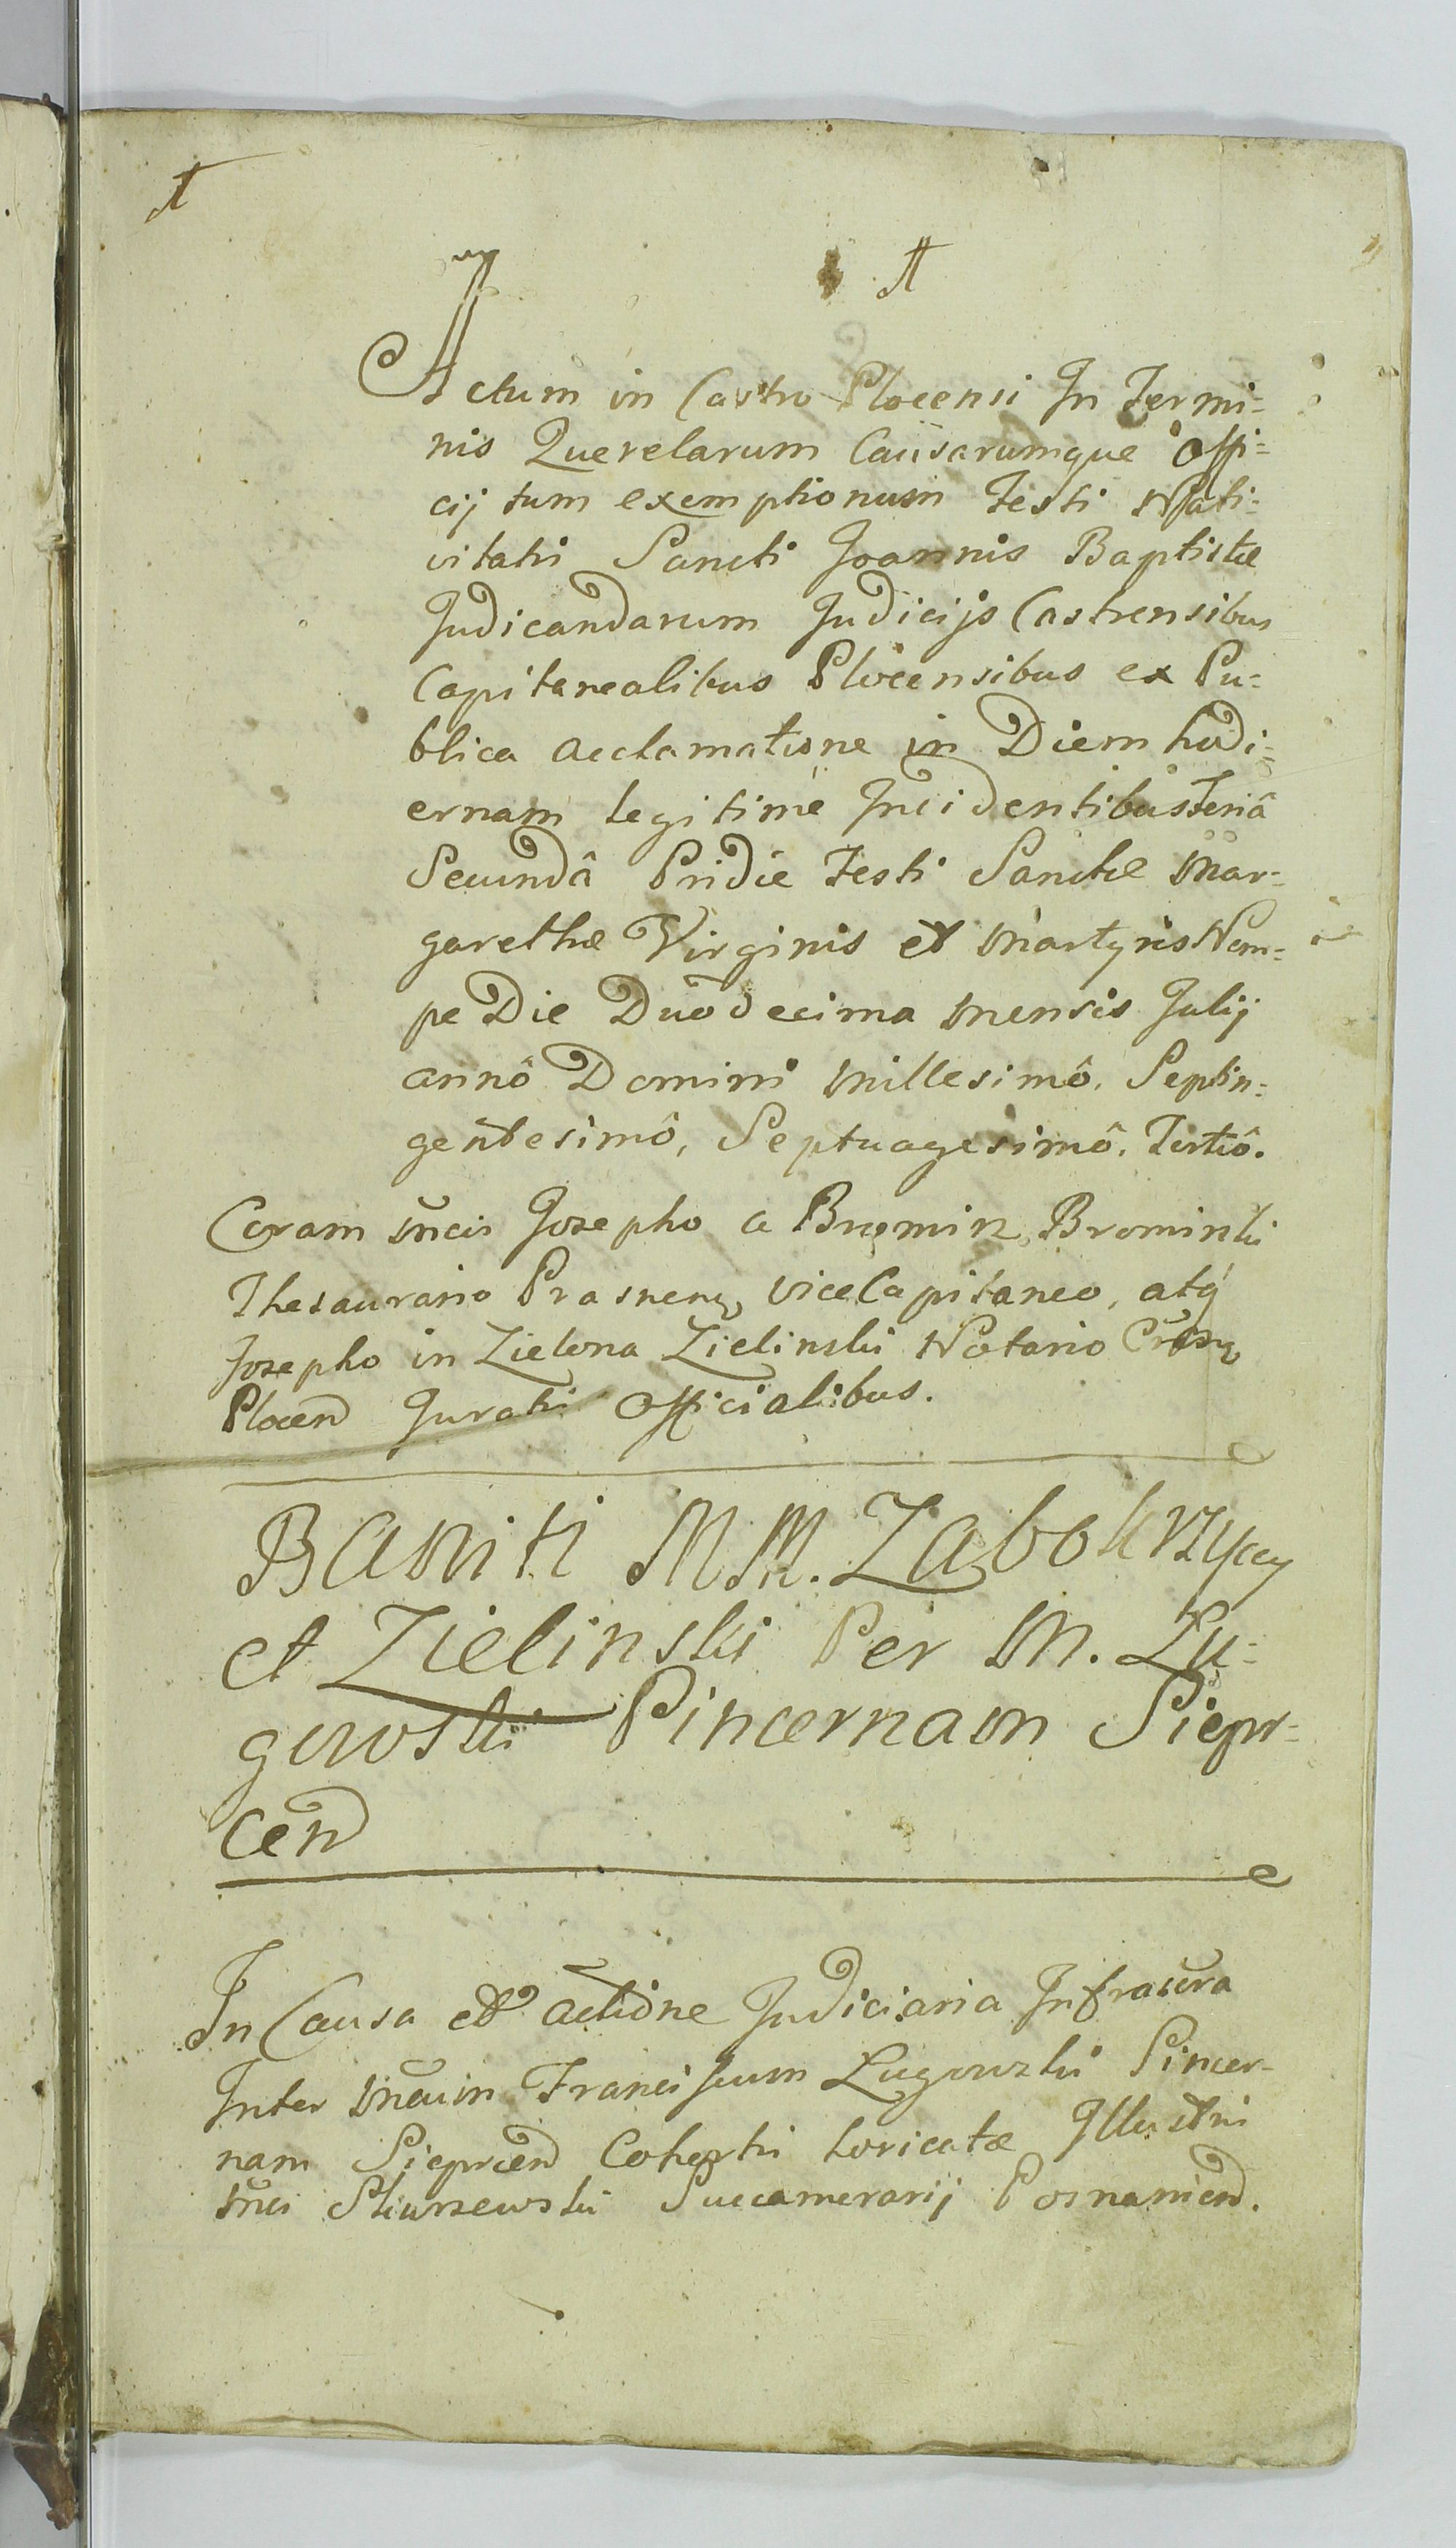 A
A
Actum in Castro Plocensi In Termi=
nis Querelarum Causarumque Offi=
cij tum exemptionum Festi Nati=
vitatis Sancti Joannis Baptistæ
Judicandarum Judicijs Castrensibus
Capitanealibus Plocensibus ex Pu=
blica acclamatione in Diem hodi=
ernam legitime Incidentibus Feriâ
Secundâ Pridie Festi Sanctæ Mar=
garethæ Virginis et Martyris Nem=
pe Die Duodecima Mensis Julij
annô Domini Millesimô, Septin=
gentesimô, Septuagesimô, Tertiô.
Coram Mcis Josepho a Bromin Brominski
Thesaurario Prasnens ViceCapitaneo, atq
Josepho in Zielona Zielinski Notario Crensi
Plocen Juratis Officialibus.
Baniti MM. Zabokrzyccy
et Zielinski Per M. Łu=
gowski Pincernam Siepr=
cen
In Causa et actione Judiciaria Infrascra
Inter Mcum Franciscum Lugowski Pincer=
nam Sieprcen Cohortis loricatæ Illustris
Mci Skurzewski Succamerarij Posnanien.